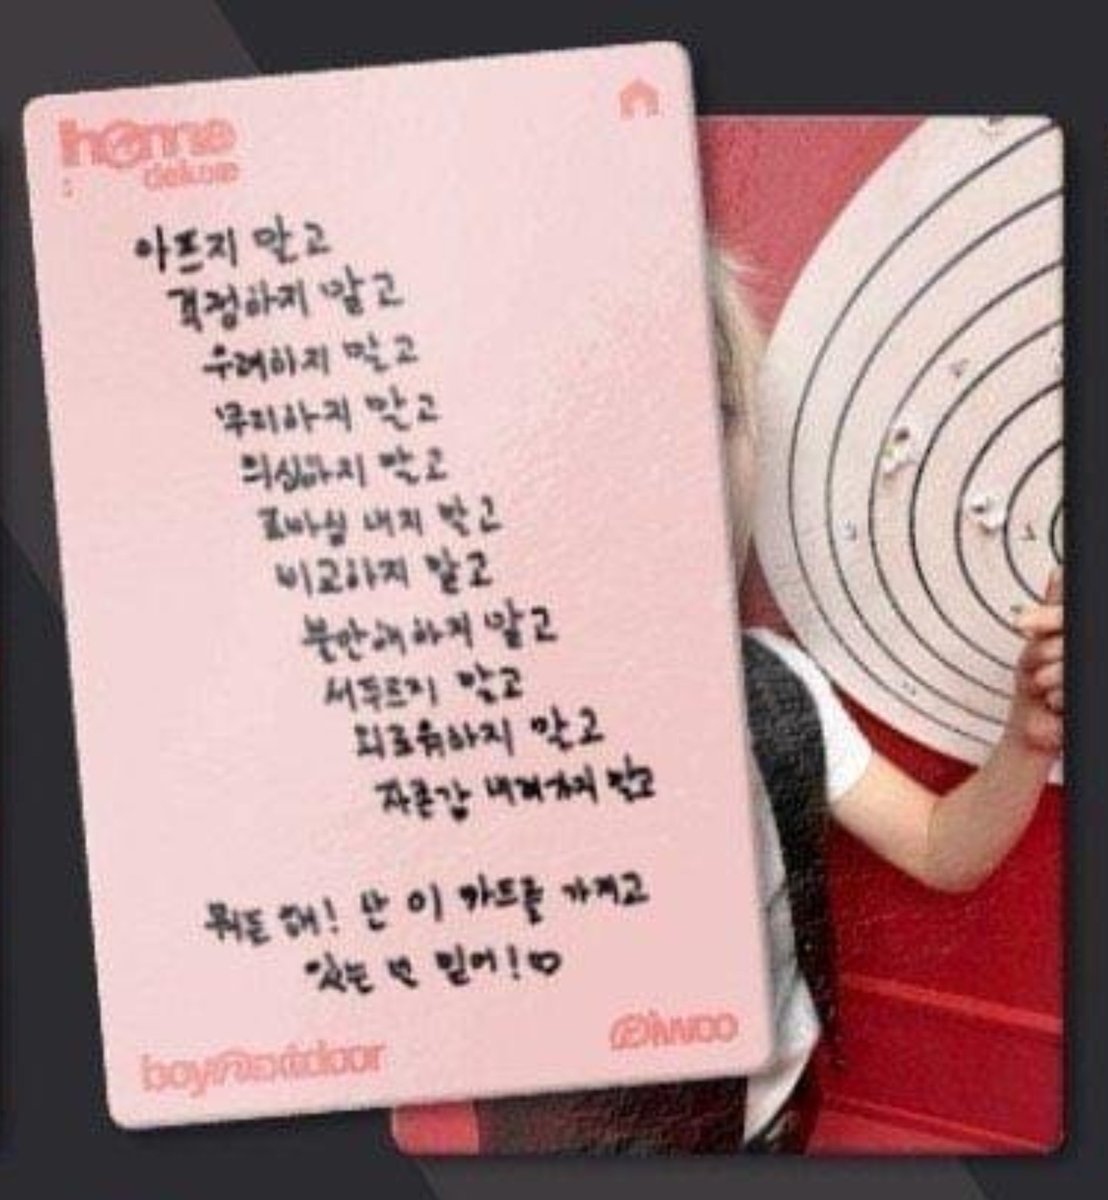 home
deluxe
아프지 말고
걱정하지 말고
우려하지 말고
무리하지 말고
의심하지 말고
조바심 내지 말고
비교하지 말고
불안해하지 말고
서두르지 말고
외로워하지 말고
자존감 내려가지 말고
뭐든 해! 난 이 카드를 가지고
있는 널 믿어!♡
boynextdoor
Riwoo